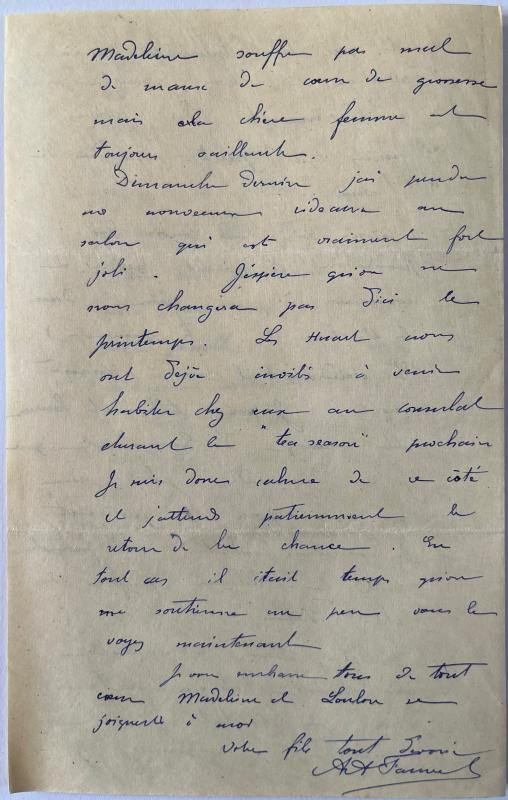 Madeleine souffre pas mal
de maux de coeur de grossesse
mais la chère femme est
toujours vaillante.
Dimanche dernier j'ai pendu
nos nouveaux rideaux au
salon qui est vraiment fort
joli. J'espère qu'on ne
nous changera pas d'ici le
printemps. Les Huart nous
ont déjà invités à venir
habiter chez eux au consulat
durant le "tea season" prochain
Je suis donc calme de ce côté
et j'attends patiemment le
retour de la chance. En
tout cas il était temps qu'on
me soutienne un peu vous le
voyez maintenant
Je vous embrasse tous de tout
coeur Madeleine et Loulou se
joignent à moi
Votre fils tout dévoué